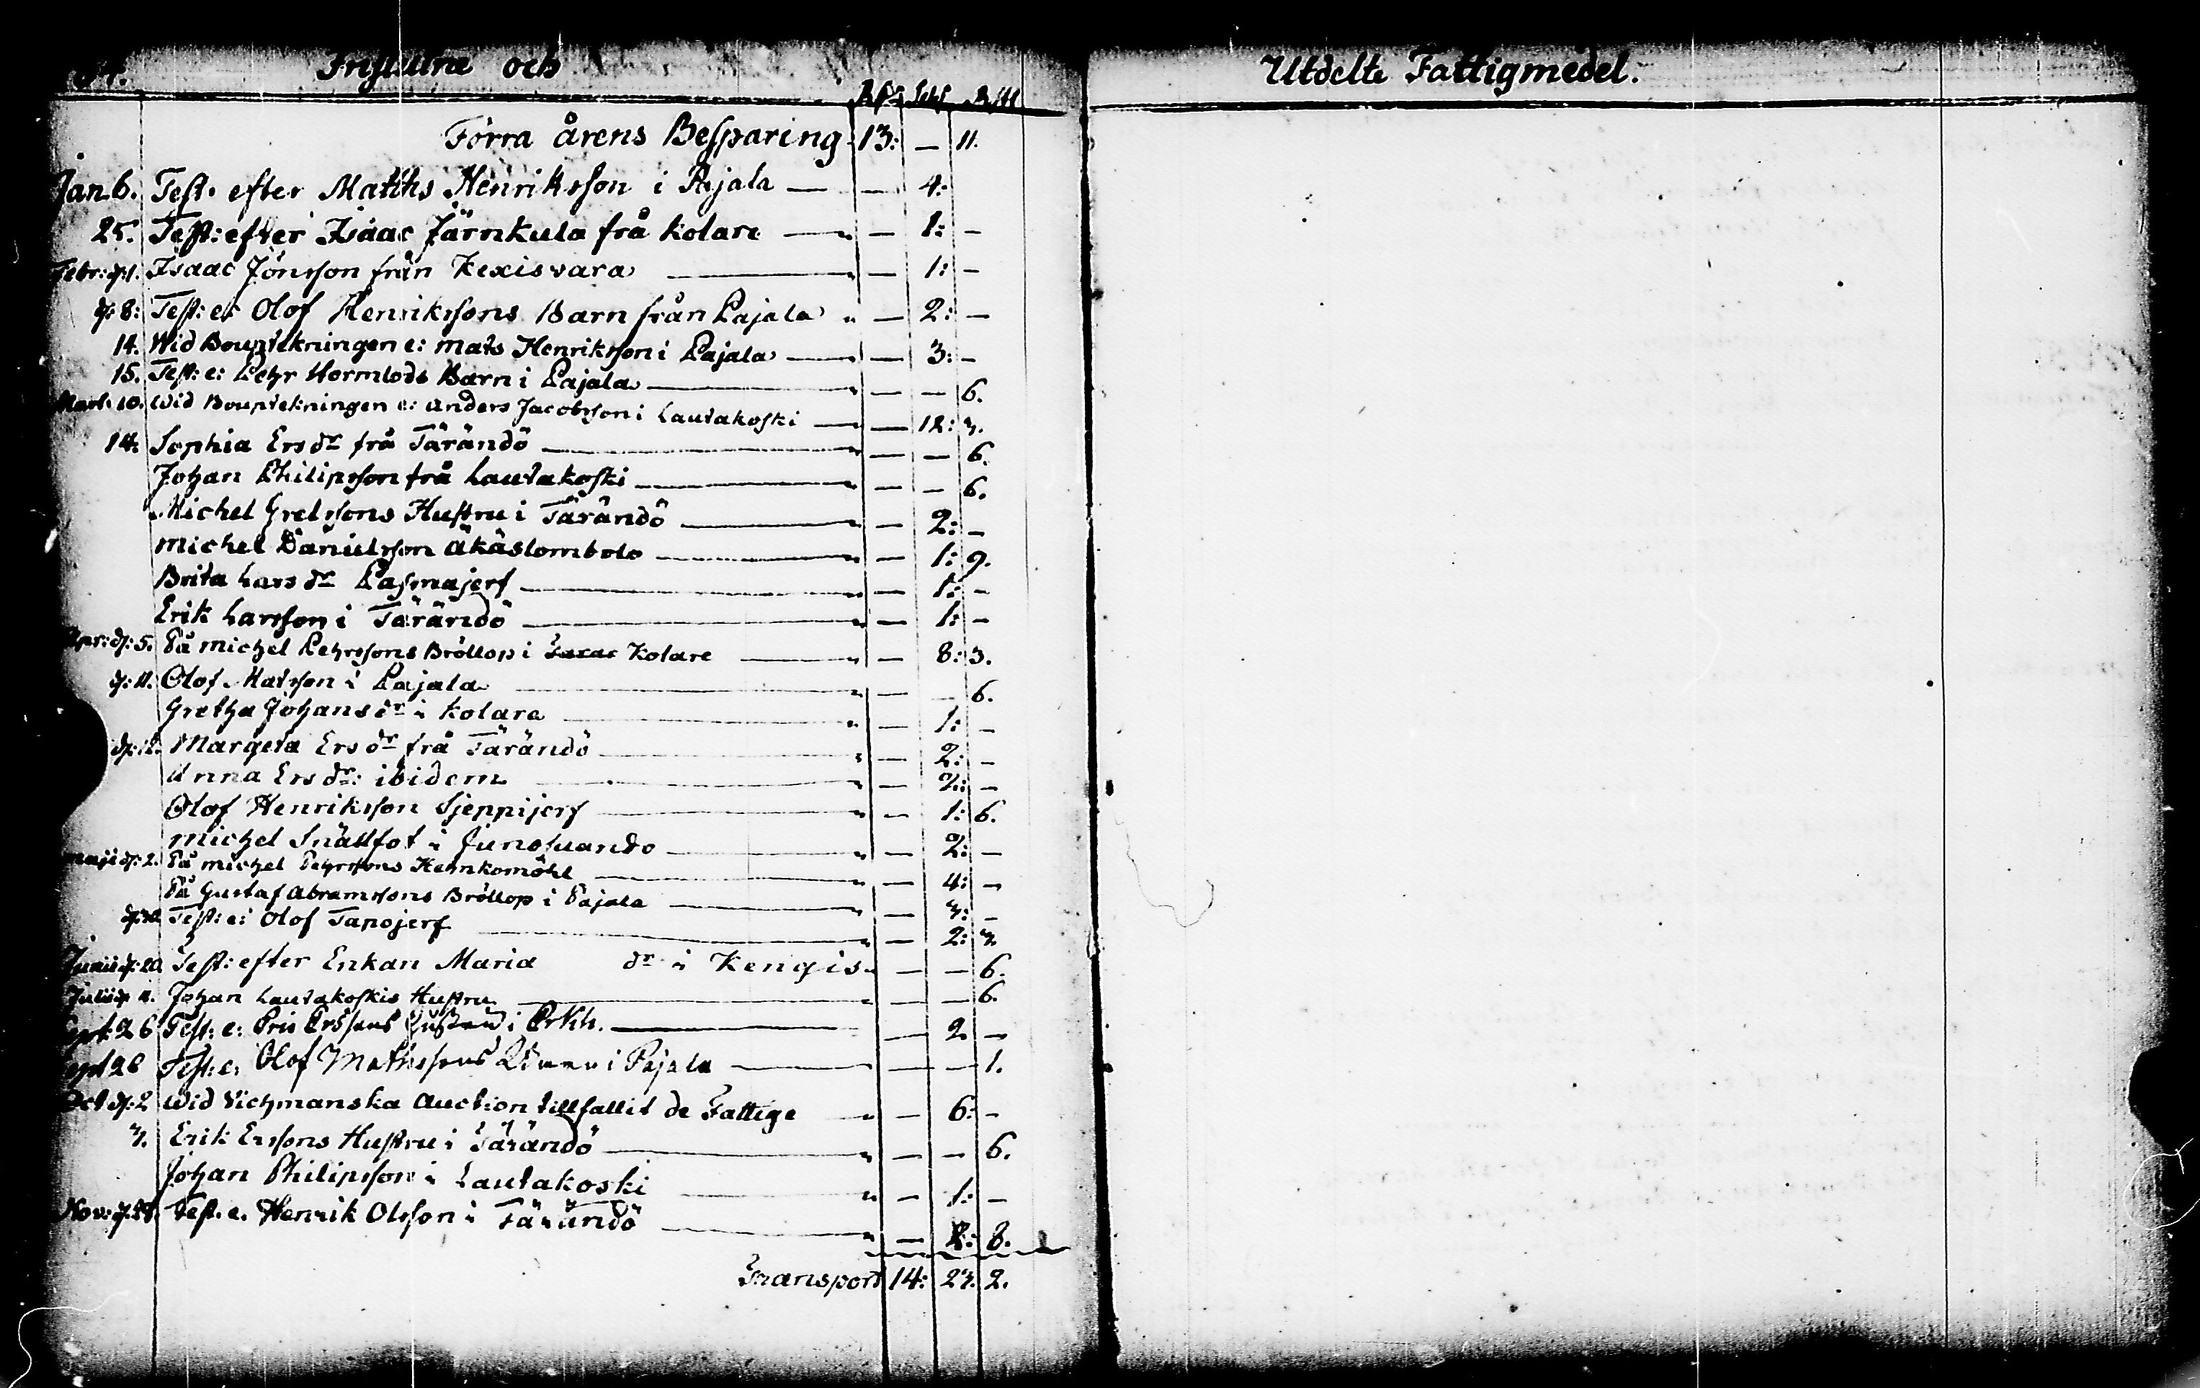 och
Utdelte Fattigmedel.
Rdr Sch Rst
Förra årens Besparing 13: — 11.
Jan. 6. Test. efter Matths Henriksson i Pajala — — 4:
25. Test: efter Isaac Järnkula frå Kolare — — 1: —
Febr: d: 1. Isaac Jönsson från Kexisvara — — 1: —
d: 8: Test: e: Olof Henrikssons Barn från Pajala — 2: —
14. Wid Bouptekningen e: Mats Henriksson i Pajala — — 3: —
15. Test: e: Pehr Hormlods Barn i Pajala — — — 6.
Mart: 10. Wid Bouptekningen e: Anders Jacobsson i Lautakoski — — 12: 3.
14. Sophia Ersdr frå Tärändö — — — 6.
Johan Philipsson frå Lautakoski — — — 6.
Michel Grelssons Hustru i Tärändö — — 2: —
Michel Danielsson Äkäslombolo — — 1: 9.
Brita Larsdr Pasmajerf — — 1: —
Erik Larsson i Tärändö — — 1: —
Apr: d: 5. På Michel Pehrssons Bröllop i Kolare — — 8: 3.
d: 11. Olof Matsson i Pajala — — — 6.
Gretha Johansdr i Kolare — — 1: —
d: 12. Margeta Ersdr frå Tärändö — — 2: —
Anna Ersdr: ibidem — — 2: —
Olof Henriksson Sjeppijerf — — 1: 6.
Michel Snällfot i Junosuando — — 2: —
Maji d: 2. På Michel Pehrssons Hemkomöhl — — 4: —
På Gustaf Abramssons Bröllop i Pajala — — 3: —
Test: e: Olof Tanojerf — — 2: 3.
Junii d: 20. Test: efter Enkan Maria dr i Kengis — — — 6.
Julii d: 11. Johan Lautakoskis Hustru — — 6.
Sept 26 Test: e: Erssons i — 2 —
Sept 26 Test: e: Olof Mathssons i Pajala — — — 1.
Oct d: 2 Wid Vichmanska Auction tillfallit de Fattige — — 6: —
3. Erik Erssons Hustru i Tärändö — — — 6.
Johan Philipsson i Lautakoski — — 1: —
Nov: d: Test. e. Henrik Olsson i Tärändö — — 8.
Transport 14: 23. 2.